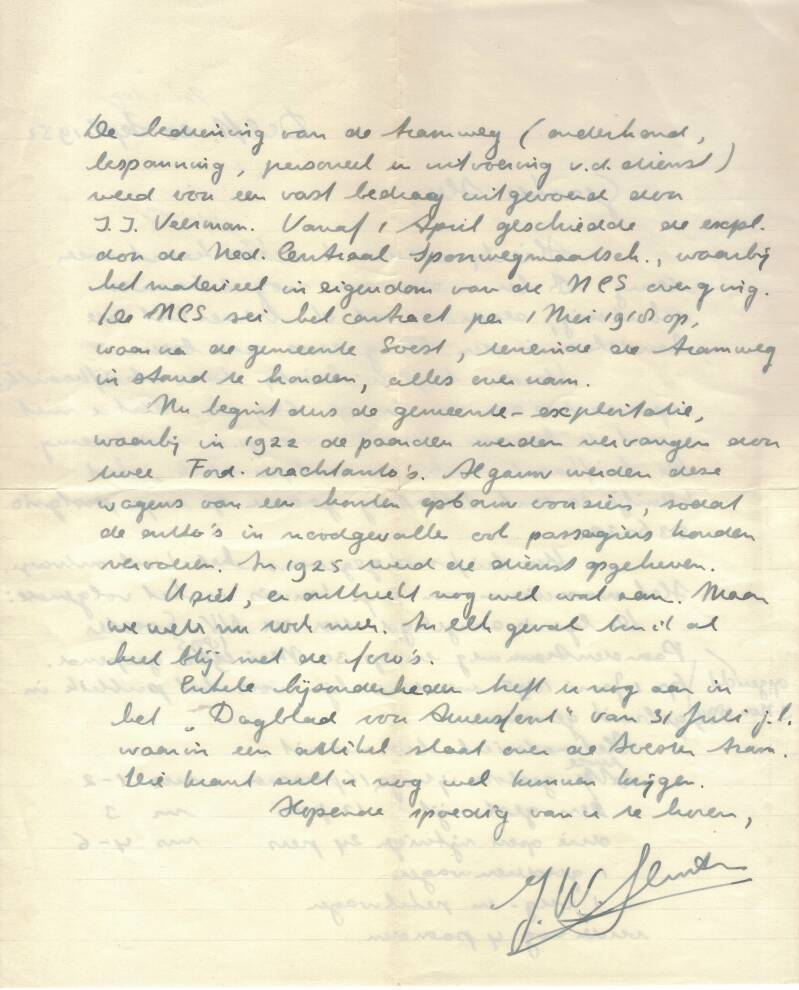 De bediening van de tramweg (onderhoud,
bespanning, personeel en uitvoering v.d. dienst)
werd voor een vast bedrag uitgevoerd door
J.J. Veerman. Vanaf 1 April geschiedde de expl.
door de Ned. Centraal Spoorwegmaatsch., waarbij
het materieel in eigendom van de NCS overging.
De NCS zei het contract per 1 Mei 1918 op,
waarna de gemeente Soest, teneinde de tramweg
in stand te houden, alles overnam.
Nu begint dus de gemeente-exploitatie,
waarbij in 1922 de paarden werden vervangen door
twee Ford-vrachtauto's. Algauw werden deze
wagens van een houten opbouw voorzien, zodat
de auto's in noodgevallen ook passagiers konden
vervoeren. In 1925 werd de dienst opgeheven.
U ziet, er ontbreekt nog wel wat aan. Maar
we weten nu toch meer. In elk geval ben ik al
heel blij met de foto's.
Enkele bijzonderheden treft u nog aan in
het „Dagblad voor Amersfoort" van 31 Juli j.l.
waarin een artikel staat over de Soester tram.
Die krant zult u nog wel kunnen krijgen.
Hopende spoedig van u te horen,
J.W.